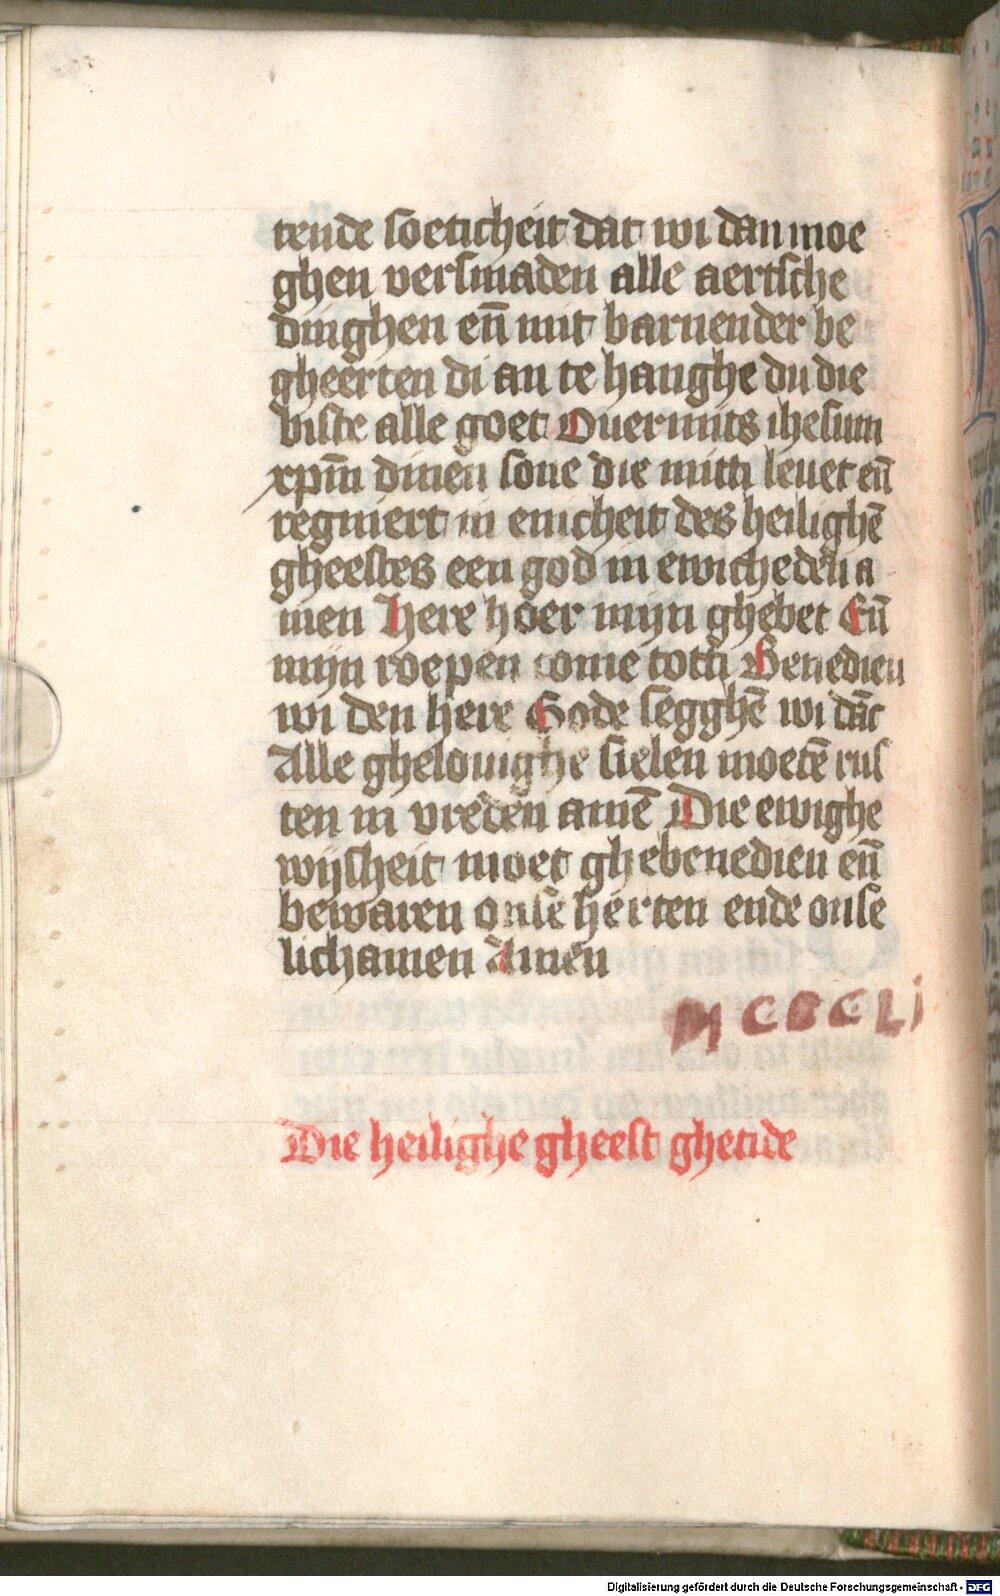 rende soeticheit dat wi dan moe
ghen versmaden alle aertsche
dinghen en̄ mit barnender be
gheerten di an te hanghe du die
biste alle goet Ouermits ihesum
xp̄m dinen sone die mitti leuet en̄
regniert in enicheit des heilighē
gheestes een god in ewicheden a
men Here hoer mijn ghebet En̄
mijn roepen come totti Benedien
wi den here Gode segghē wi dāc
Alle ghelouighe sielen moetē rus
ten in vreden amē Die ewighe
wijsheit moet ghebenedien en̄
bewaren onse herten ende onse
lichamen Amen
MCDCLi
Die heilighe gheest ghetide
Digitalisierung gefördert durch die Deutsche Forschungsgemeinschaft - DFG